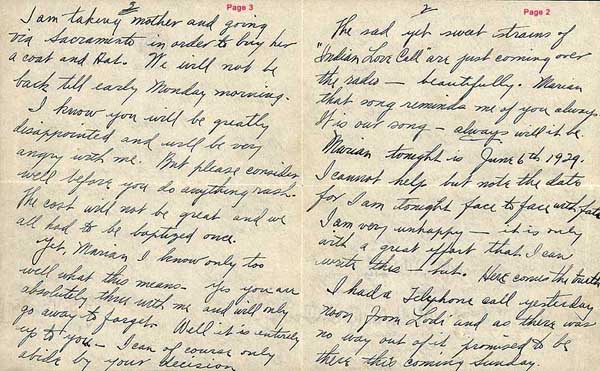 Page 3
2
I am taking mother and going
via Sacramento in order to buy her
a coat and hat. We will not be
back till early Monday morning.
I know you will be greatly
disappointed and will be very
angry with me. But please consider
well before you do anything rash.
The cost will not be great and we
all had to be baptized once.
Yet Marian I know only too
well what this means - yes you are
absolutely thru with me and will only
go away to forget. Well it is entirely
up to you - I can of course only
abide by your decision
Page 2
2
The sad yet sweet strains of
"Indian Love Call" are just coming over
the radio - beautifully. Marian
that song reminds me of you always.
It is our song - always will it be.
Marian tonight is June 6th, 1929.
I cannot help but note the date
for I am tonight face to face with fate
I am very unhappy - it is only
with a great effort that I can
write this - but. Here comes the truth
I had a Telephone call yesterday
noon from Lodi and as there was
no way out of it promised to be
there this coming Sunday.